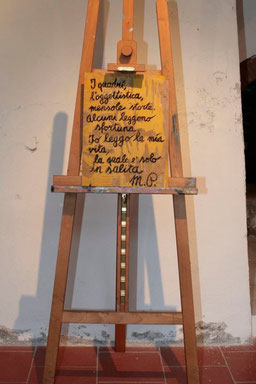 I quadri,
l'oggettistica,
mensole storte.
Alcuni leggono
sfortuna.
Io leggo la mia
vita,
la quale e' solo
in salita.
M.P.